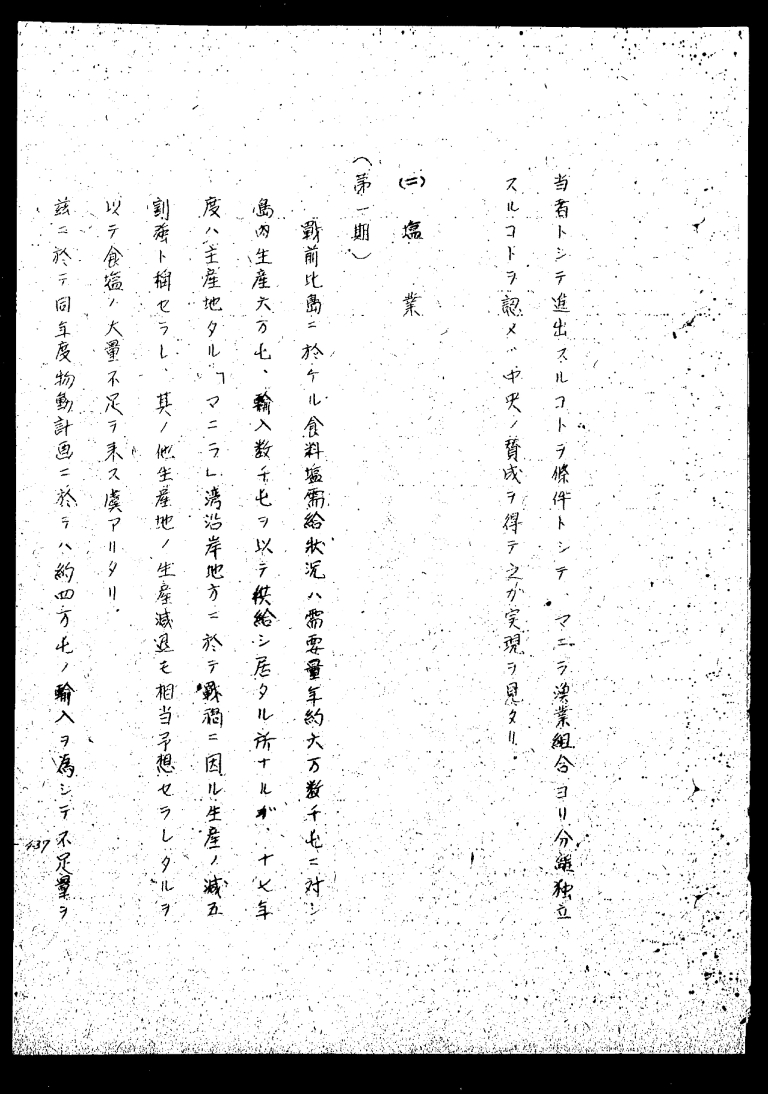 当者トシテ進出スルコトヲ條件トシテ、マニラ漁業組合ヨリ分離独立
スルコトヲ認メ、中央ノ賛成ヲ得テ之ガ実現ヲ見タリ。
(二) 塩業
(第一期)
戰前比島ニ於ケル食料塩需給狀況ハ需要量年約六万数千屯ニ対シ
島内生産六万屯、輸入数千屯ヲ以テ供給シ居タル所ナルガ、十七年
度ハ主産地タル「マニラ」湾沿岸地方ニ於テ戰禍ニ因ル生産ノ減五
割強ト稱セラレ、其ノ他生産地ノ生産減退モ相当予想セラレタルヲ
以テ食塩ノ大量不足ヲ来ス虞アリタリ。
茲ニ於テ同年度物動計画ニ於テハ約四万屯ノ輸入ヲ為シテ不足量ヲ
437